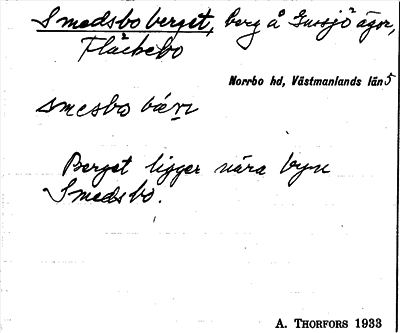 Smedsboberget, berg å Gussjö ägor,
Fläckebo
Norrbo hd, Västmanlands län 5
Berget ligger nära byn
Smedsbo.
A. THORFORS 1933